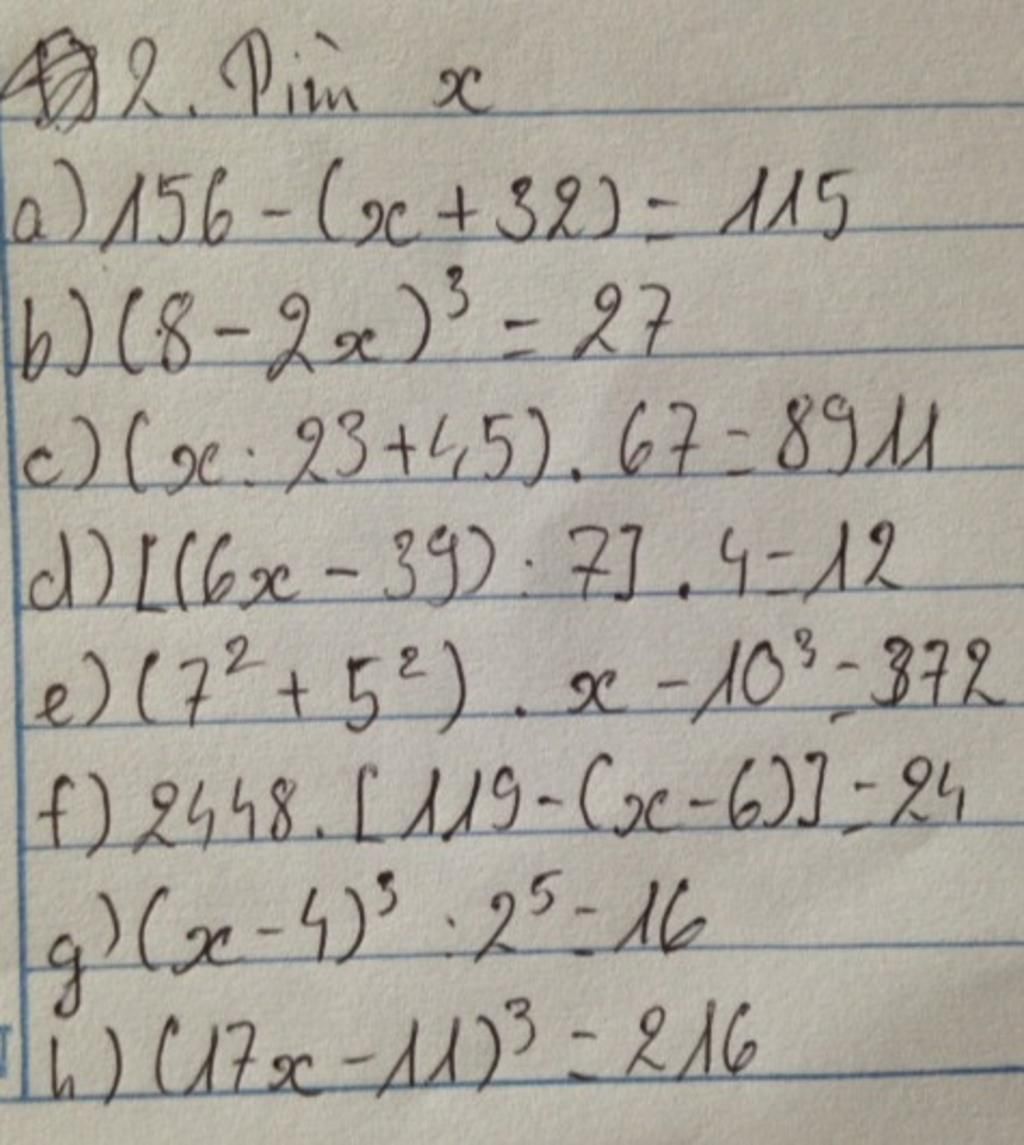 2. Tìm x
a) 156 - (x + 32) = 115
b) (8 - 2x)³ = 27
c) (x : 23 + 45) . 67 = 8911
d) [(6x - 39) : 7] . 4 = 12
e) (7² + 5²) . x - 10³ = 372
f) 2448 . [119 - (x - 6)] = 24
g) (x - 4)³ : 2⁵ = 16
h) (17x - 11)³ = 216